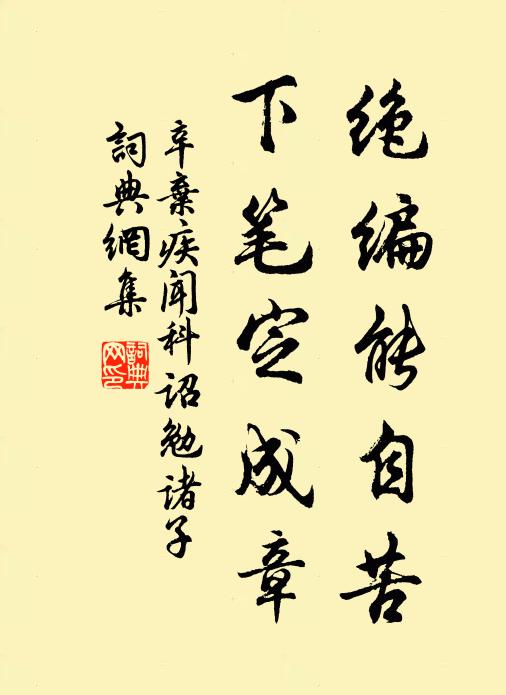 绝编能自苦
下笔定成章
辛棄疾闻科诏勉诸子
詞典網集
詞典网印